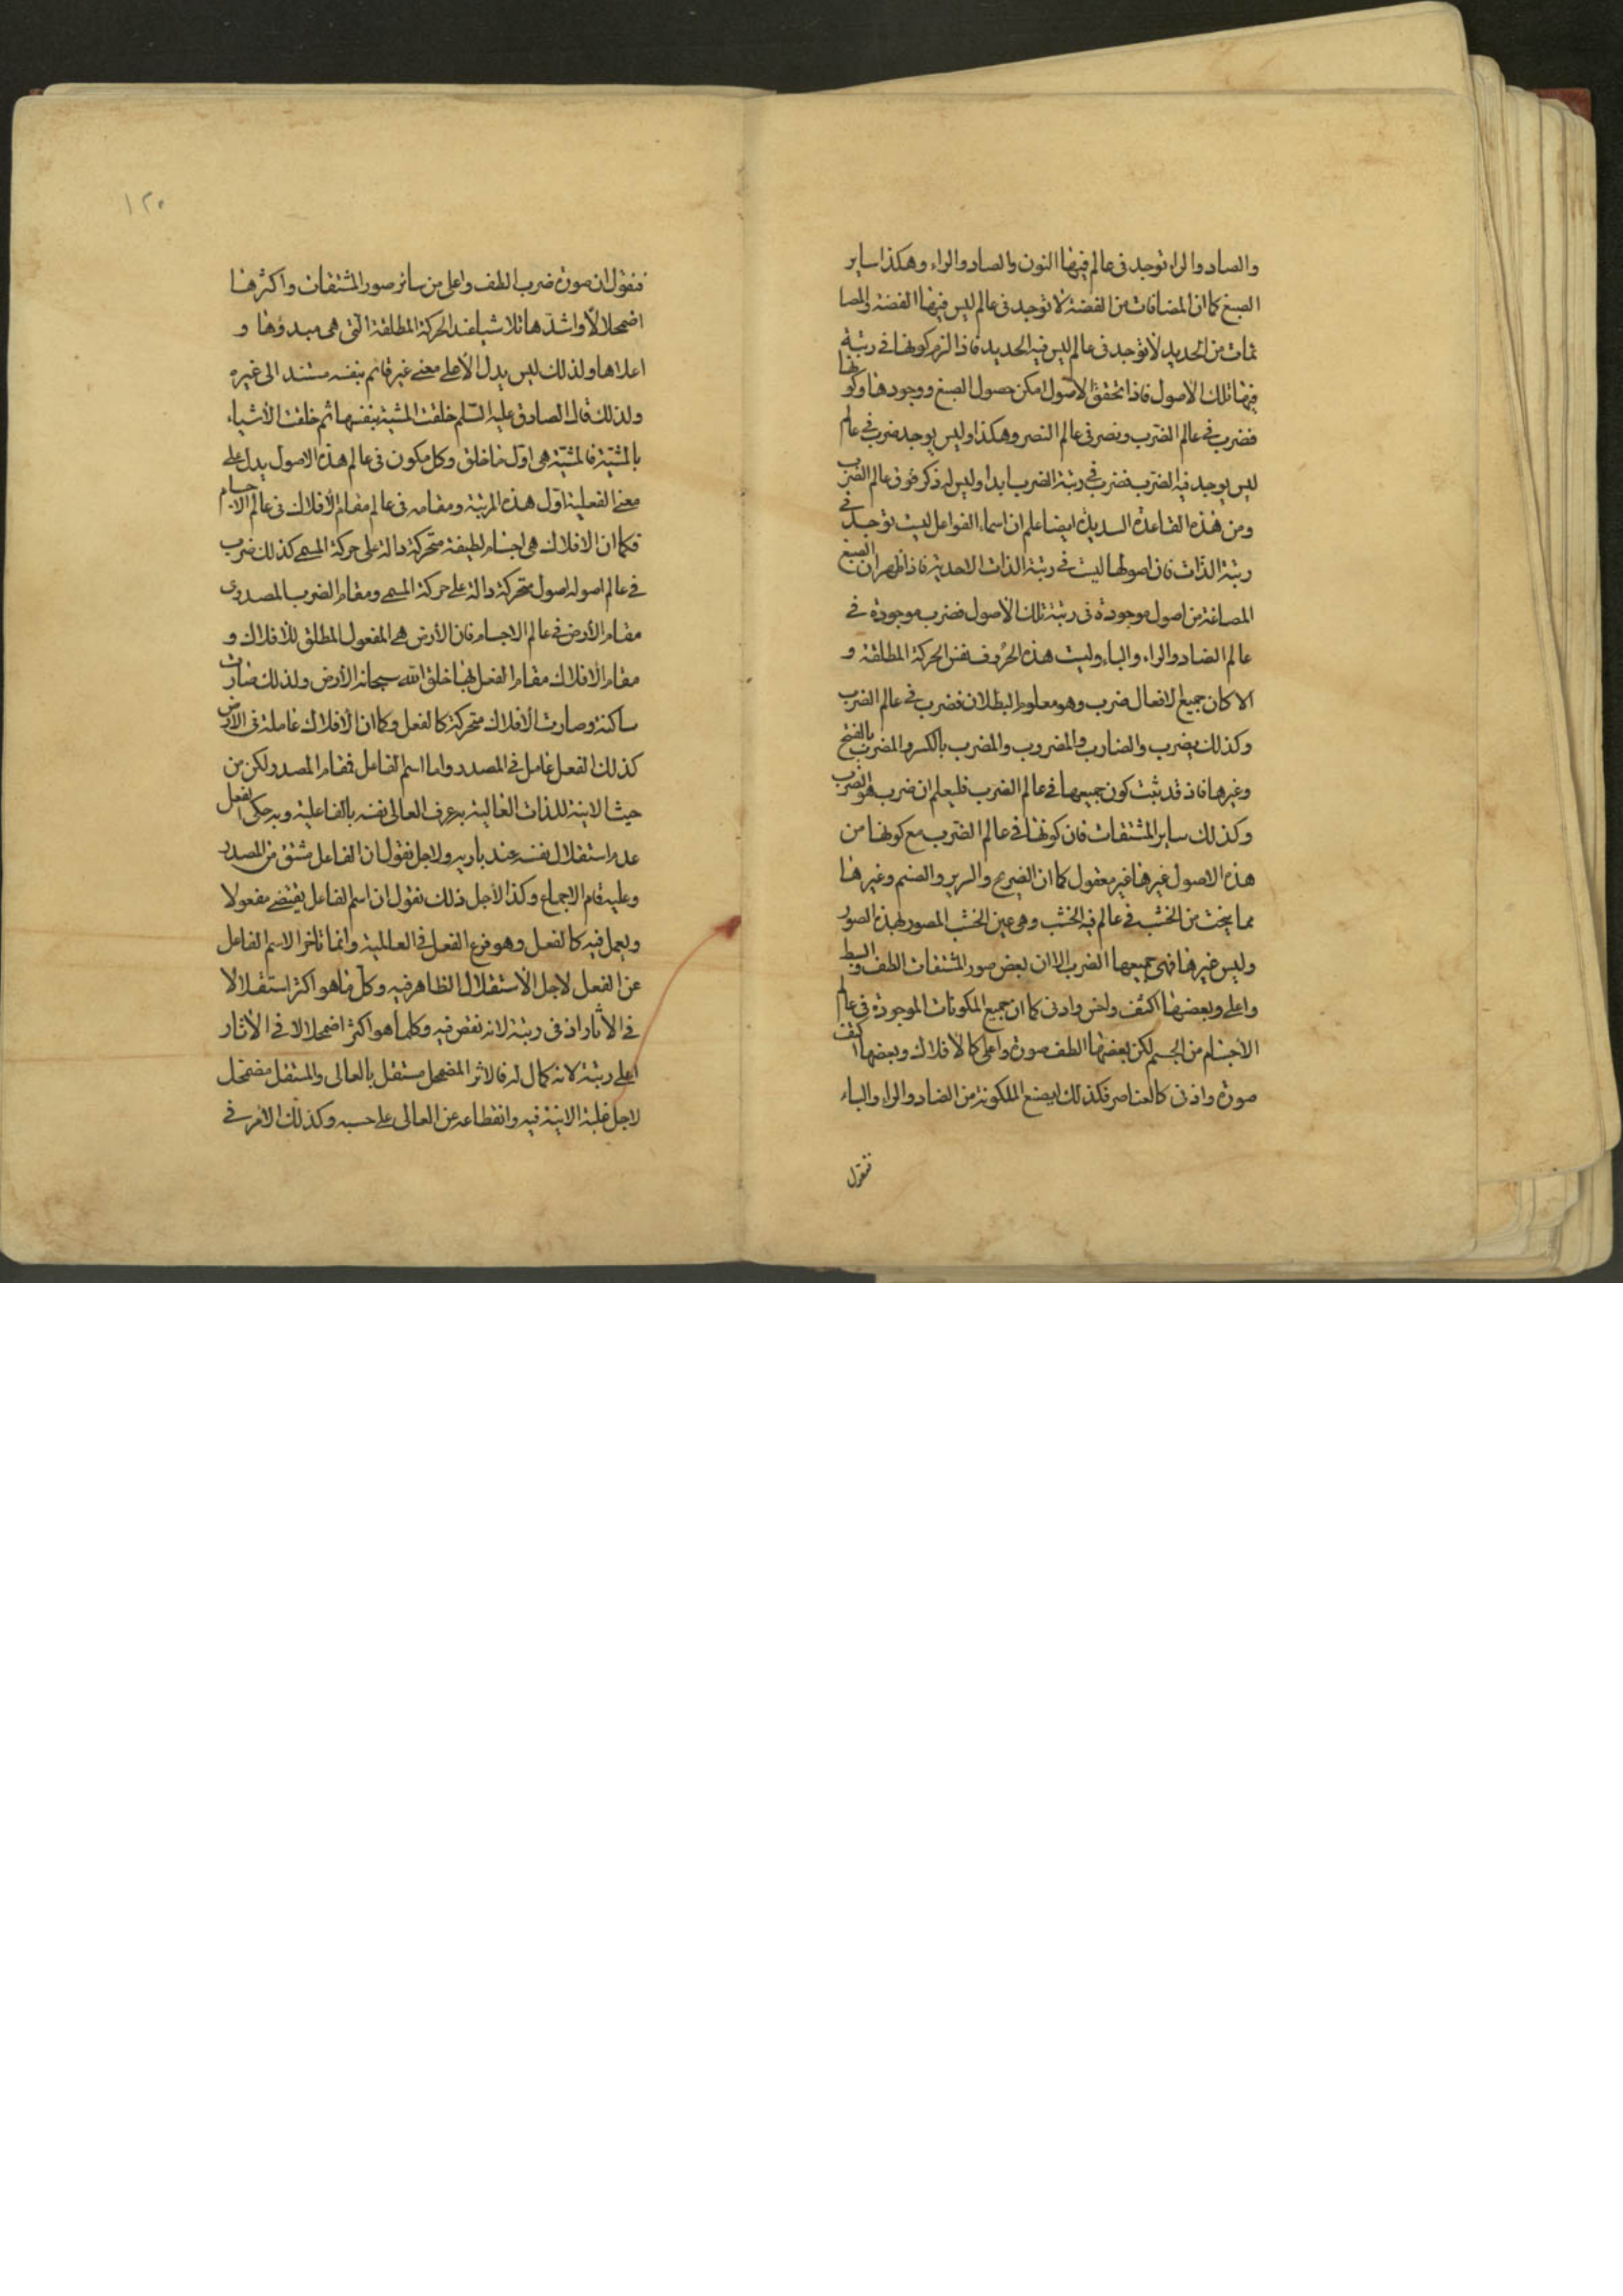 والصاد والراء توجد فی عالم فیها النون والصاد والراء وهكذا سایر
الصیغ كما ان المضافات من الفضة لا توجد فی عالم لیس فیها الفضة والمصا
من الحدید لا توجد فی عالم لیس فیه الحدید فاذا لزم كونها فی رتبة
فیها تلك الاصول فاذا تحقق الاصول امكن حصول الصیغ ووجودها وكونها
فضرب فی عالم الضرب ونصر فی عالم النصر وهكذا ولیس یوجد ضرب فی عالم
لیس یوجد فیه الضرب فضرب فی رتبة الضرب ابدا ولیس له ذكر فوق عالم الضرب
ومن هذه القاعدة السدیدة ایضا علم ان اسماء الفواعل لیست توجد فی
رتبة الذات فان اصولها لیست فی رتبة الذات الاحدیة فاذا ظهر ان الصیغ
المصاغة من اصول موجودة فی رتبة تلك الاصول فضرب موجودة فی
عالم الضاد والراء والباء ولیست هذه الحروف نفس الحركة المطلقة و
الا كان جمیع الافعال ضرب وهو معلوم البطلان فضرب فی عالم الضرب
وكذلك یضرب والضارب والمضروب والمضرب بالكسر والمضرب بالفتح
وغیرها فاذ قد ثبت كون جمیعها فی عالم الضرب فلیعلم ان ضرب هو الضرب
وكذلك سایر المشتقات فان كونها فی عالم الضرب مع كونها من
هذه الاصول غیرها غیر معقول كما ان الضریح والسریر والصنم وغیرها
مما ینحت من الخشب فی عالم فیه الخشب وهی عین الخشب المصور بهذه الصور
ولیس غیرها فهی جمیعها الضرب الا ان بعض صور المشتقات الطف وابسط
واعلی وبعضها اكثف واخس وادنی كما ان جمیع المكونات الموجودة فی عالم
الاجسام من الجسم لكن بعضها الطف صورة واعلی كالافلاك وبعضها اكثف
صورة وادنی كالعناصر فكذلك الصیغ المكونة من الضاد والراء والباء
فنقول
١٢٥
فنقول ان صورة ضرب الطف واعلی من سائر صور المشتقات واكثرها
اضمحلالا واشدها تلاشیا عند الحركة المطلقة التی هی مبدؤها و
اعلاها ولذلك لیس یدل الا علی معنی غیر قائم بنفسه مستند الی غیره
ولذلك قال الصادق علیه السلم خلقت المشیة بنفسها ثم خلقت الاشیاء
بالمشیة فالمشیة هی اول ما خلق وكل مكون فی عالم هذه الاصول یدل علی
معنی الفعلیة اول هذه المرتبة ومقامه فی عالم مقام الافلاك فی عالم الاجسام
فكما ان الافلاك هی اجسام لطیفة متحركة دالة علی حركة المسمی كذلك ضرب
فی عالم اصوله اصول متحركة دالة علی حركة المسمی ومقام الضرب المصدری
مقام الارض فی عالم الاجسام فان الارض هی المفعول المطلق للافلاك و
مقام الافلاك مقام الفعل بها خلق الله سبحانه الارض ولذلك صارت
ساكنة وصارت الافلاك متحركة كالفعل وكما ان الافلاك عاملة فی الارض
كذلك الفعل عامل فی المصدر واما اسم الفاعل فمقام المصدر لكن من
حیث الایة للذات العالیة به عرف العالی نفسه بالفاعلیة وبه حكی الفعل
عدم استقلال نفسه عند باریه ولاجل نقول ان الفاعل مشتق من المصدر
وعلیه قام الاجماع وكذا لاجل ذلك نقول ان اسم الفاعل یقتضی مفعولا
ویعمل فیه كالفعل وهو فرع الفعل فی العاملیة وانما تاخر الاسم الفاعل
عن الفعل لاجل الاستقلال الظاهر فیه وكل ما هو اكثر استقلالا
فی الاثار ادنی رتبة لانه نقص فیه وكلما هو اكثر اضمحلالا فی الاثار
اعلی رتبة لانه كمال له فالاثر المضمحل مستقل بالعالی والمستقل مضمحل
لاجل غلبة الانیة فیه وانقطاعه عن العالی علی حسبه وكذلك الامر فی